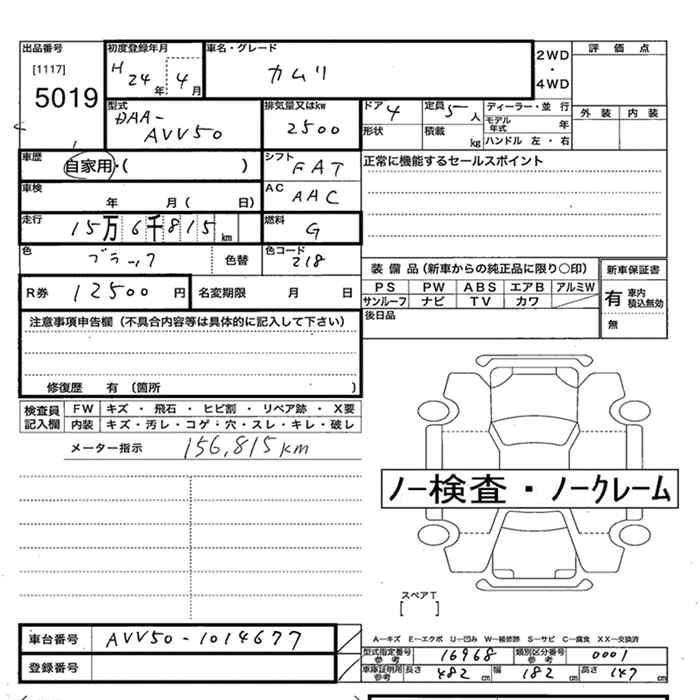 出品番号 [1117] 5019
初度登録年月 H 24年 4月
車名・グレード カムリ
2WD・4WD
評価点
外装 内装
型式 DAA-AVV50
排気量又はkw 2500
ドア 4 定員 5人
ディーラー・並行
形状 積載 kg
モデル年式 年
ハンドル 左・右
車歴 自家用・( )
シフト FAT
正常に機能するセールスポイント
車検 年 月( 日)
AC AAC
走行 15万6千815km
燃料 G
色 ブラック 色替
色コード 218
装備品(新車からの純正品に限り○印)
新車保証書
PS PW ABS エアB アルミW
サンルーフ ナビ TV カワ
有 車内積込無効
無
R券 12500円
名変期限 月 日
後日品
注意事項申告欄(不具合内容等は具体的に記入して下さい)
修復歴 有 (箇所 )
検査員記入欄
FW キズ・飛石・ヒビ割・リペア跡・X要
内装 キズ・汚レ・コゲ・穴・スレ・キレ・破レ
メーター指示 156,815km
ノー検査・ノークレーム
スペアT
[ ]
車台番号 AVV50-1014677
登録番号
A−キズ E−エクボ U−凹み W−補修跡 S−サビ C−腐食 XX−交換済
型式指定番号 参考 16968 類別区分番号 参考 0001
車庫証明所 参考 長さ 482cm 幅 182cm 高さ 147cm